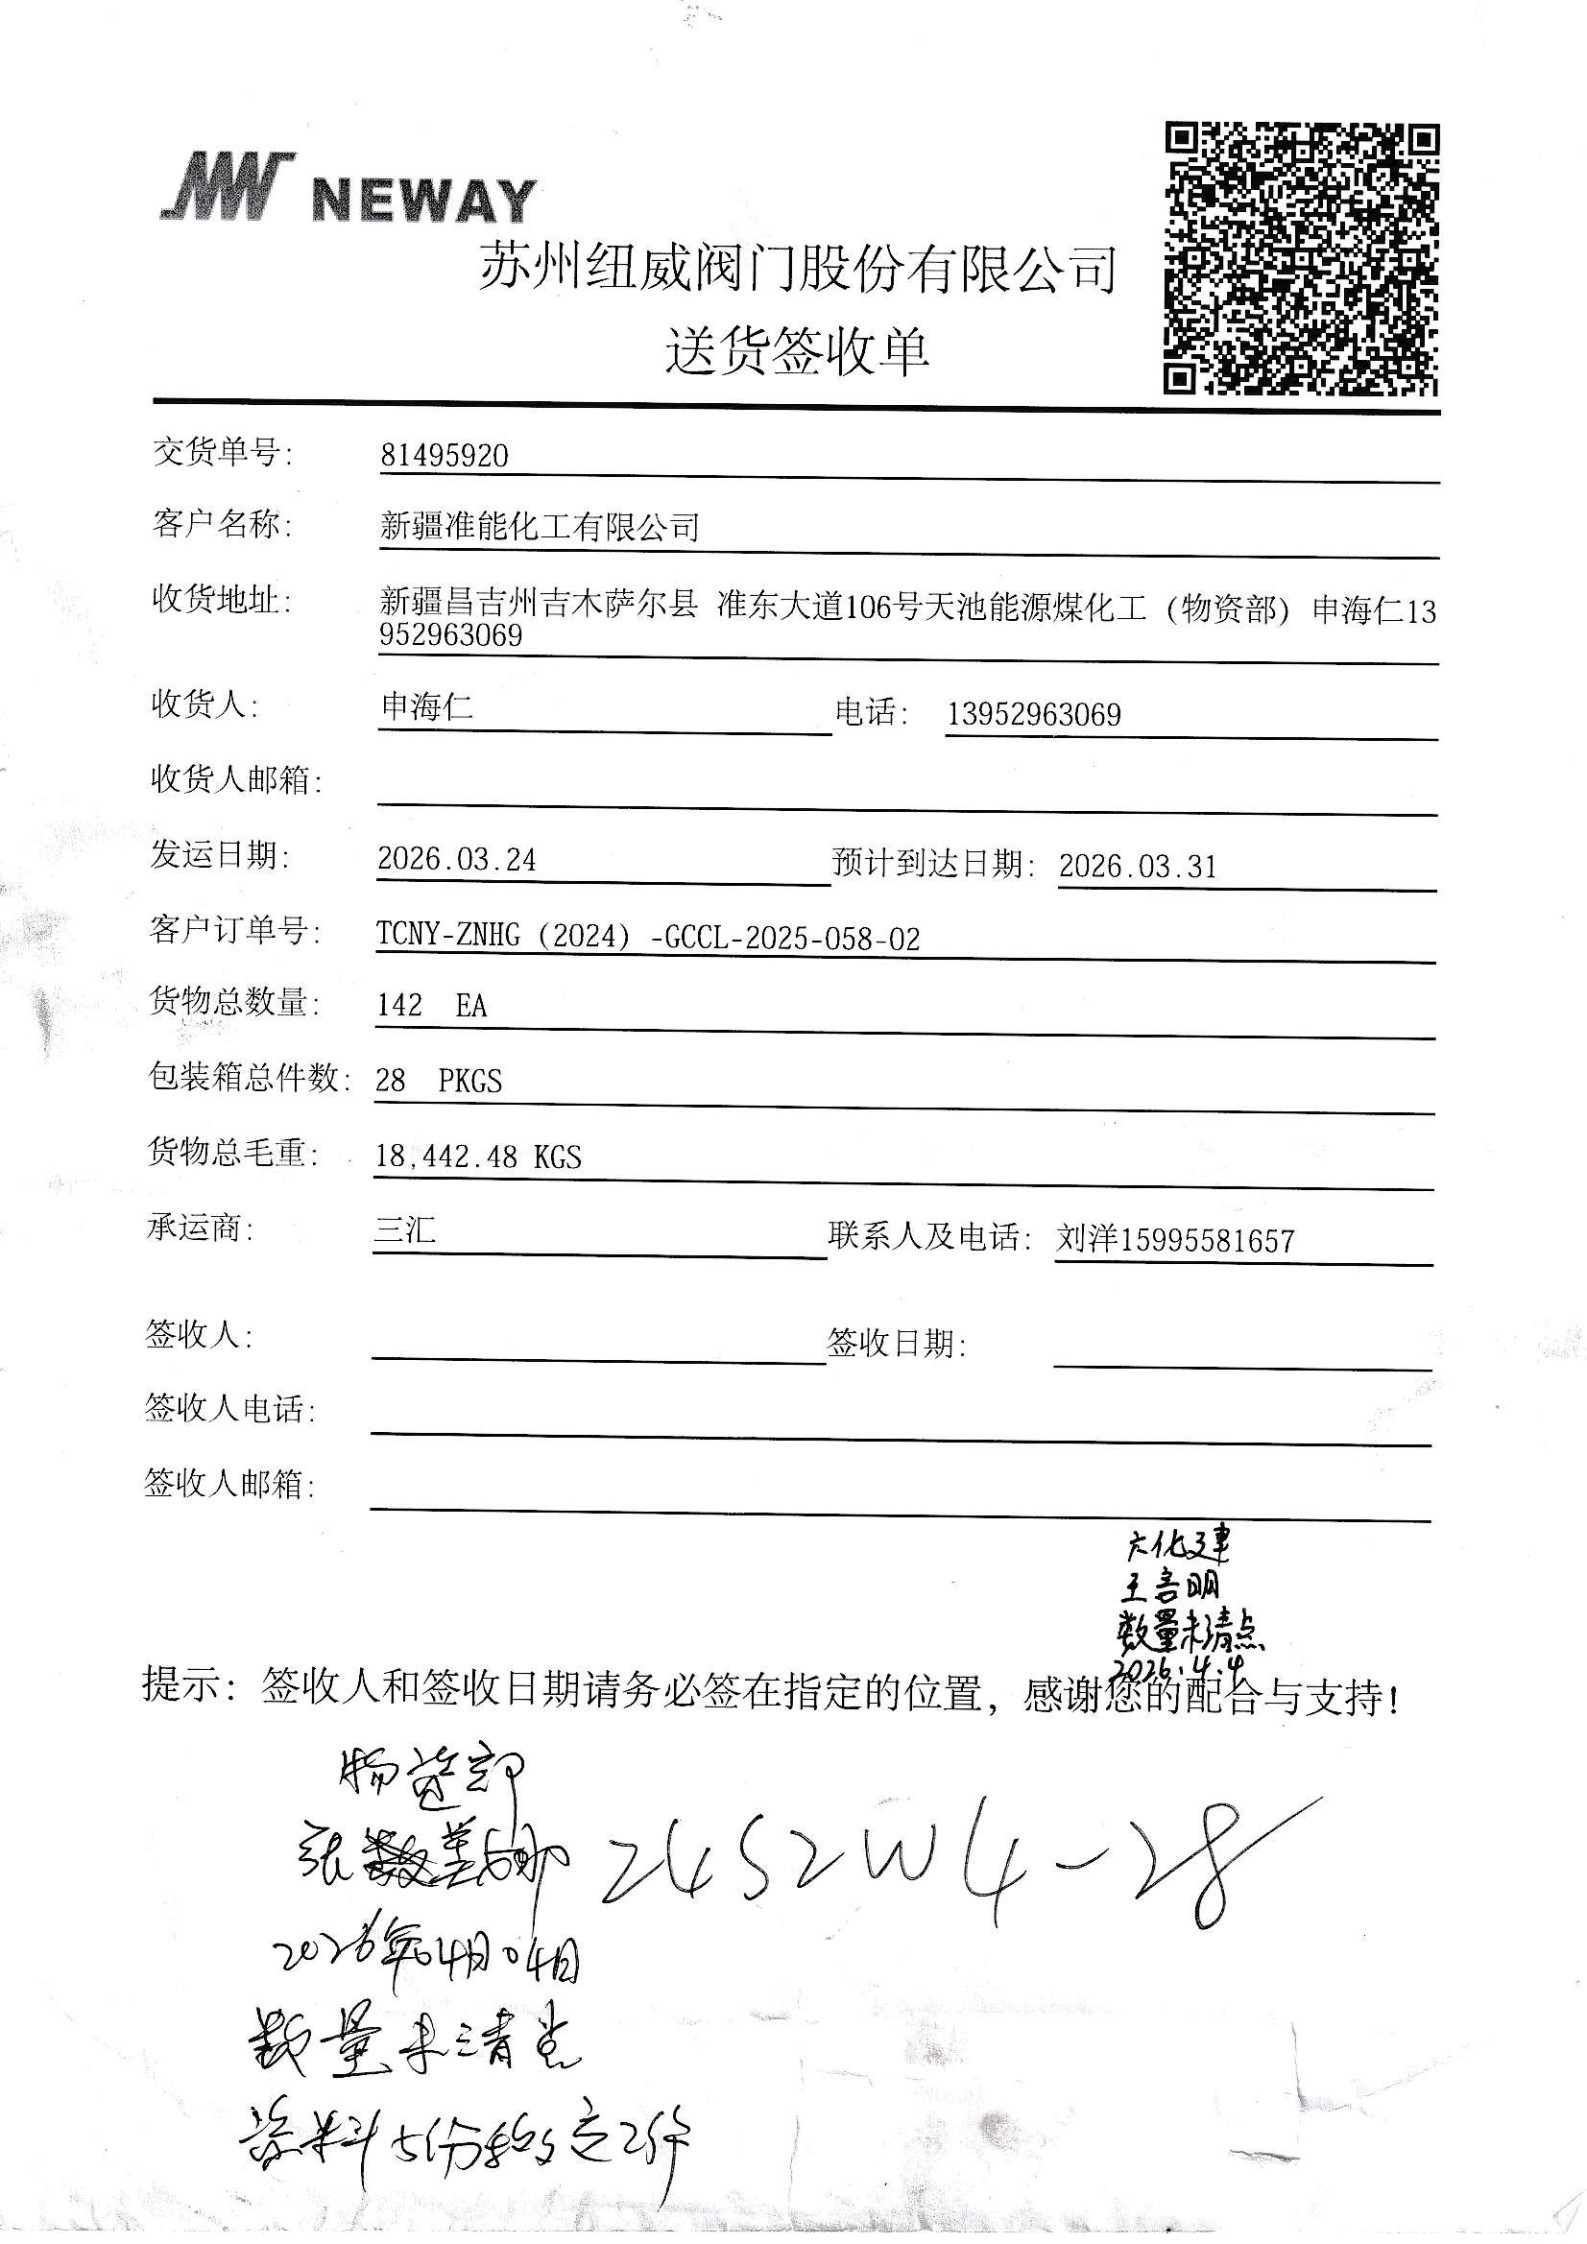 NEWAY
苏州纽威阀门股份有限公司
送货签收单
交货单号: 81495920
客户名称: 新疆准能化工有限公司
收货地址: 新疆昌吉州吉木萨尔县 准东大道106号天池能源煤化工（物资部）申海仁13
952963069
收货人: 申海仁 电话: 13952963069
收货人邮箱:
发运日期: 2026.03.24 预计到达日期: 2026.03.31
客户订单号: TCNY-ZNHG（2024）-GCCL-2025-058-02
货物总数量: 142 EA
包装箱总件数: 28 PKGS
货物总毛重: 18,442.48 KGS
承运商: 三汇 联系人及电话: 刘洋15995581657
签收人: 签收日期:
签收人电话:
签收人邮箱:
六化建
王言明
数量未清点
2026.4.4
提示: 签收人和签收日期请务必签在指定的位置，感谢您的配合与支持!
物资部
张 娜 24S2W4-28
2026年04月04日
数量未清点
资料5份 2份